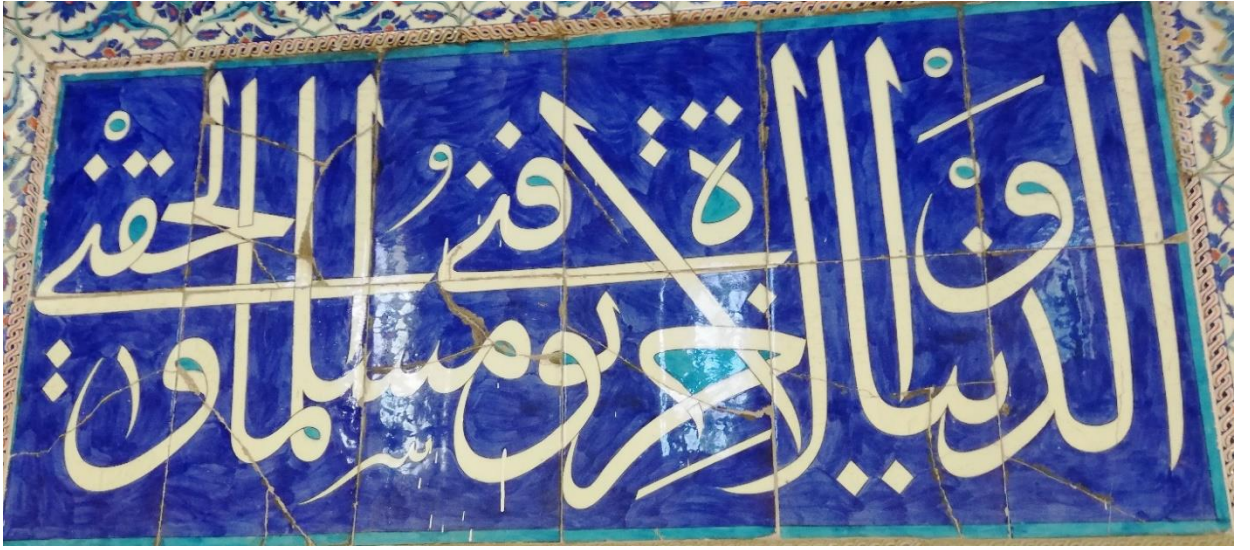 الدنيا والاخرة توفني مسلما والحقني